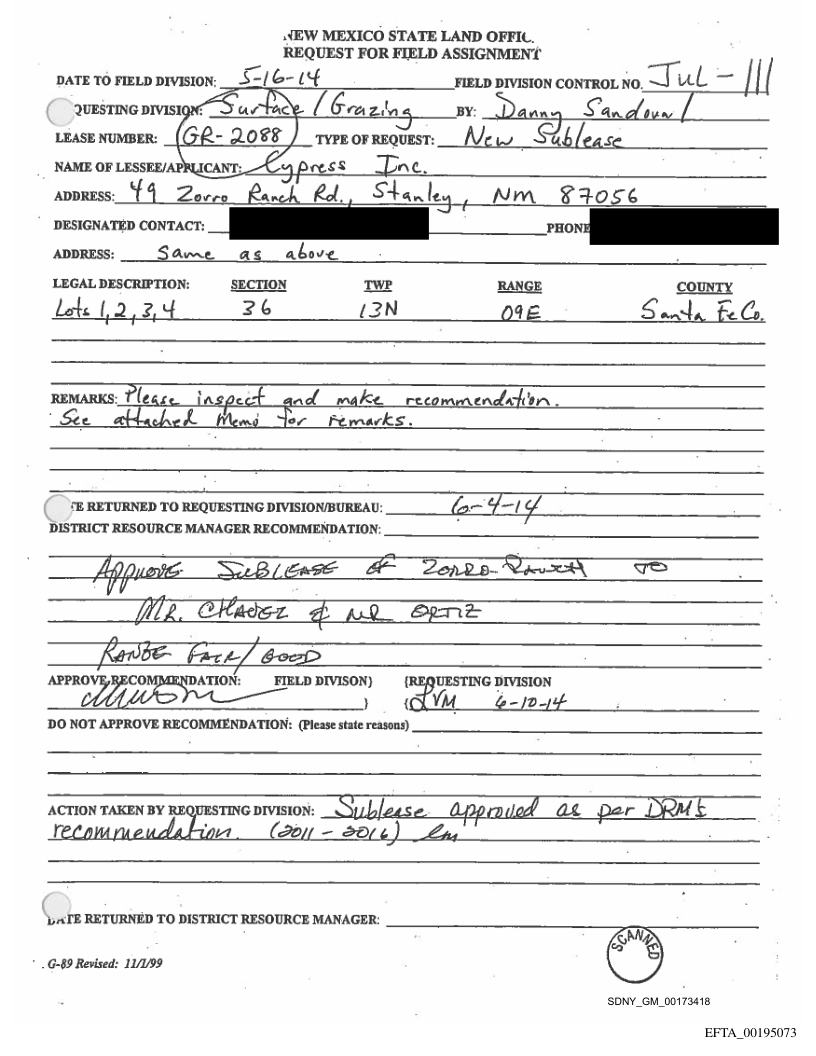 NEW MEXICO STATE LAND OFFIC
REQUEST FOR FIELD ASSIGNMENT
DATE TO FIELD DIVISION: 5-16-14 FIELD DIVISION CONTROL NO. Jul-111
QUESTING DIVISION: Surface / Grazing BY: Danny Sandoval
LEASE NUMBER: GR-2088 TYPE OF REQUEST: New Sublease
NAME OF LESSEE/APPLICANT: Cypress Inc.
ADDRESS: 49 Zorro Ranch Rd., Stanley, NM 87056
DESIGNATED CONTACT: PHONE
ADDRESS: Same as above
LEGAL DESCRIPTION: SECTION TWP RANGE COUNTY
Lots 1,2,3,4 36 13N 09E Santa Fe Co.
REMARKS: Please inspect and make recommendation.
See attached Memo for remarks.
TE RETURNED TO REQUESTING DIVISION/BUREAU: 6-4-14
DISTRICT RESOURCE MANAGER RECOMMENDATION:
Approve SUBLEASE of ZORRO RANCH TO
MR. CHAVEZ & MR ORTIZ
RANGE FAIR/GOOD
APPROVE RECOMMENDATION: FIELD DIVISON) (REQUESTING DIVISION
) ( LVM 6-10-14
DO NOT APPROVE RECOMMENDATION: (Please state reasons)
ACTION TAKEN BY REQUESTING DIVISION: Sublease approved as per DRM's
recommendation. (2011-2016) lm
DATE RETURNED TO DISTRICT RESOURCE MANAGER:
SCANNED
G-89 Revised: 11/1/99
SDNY_GM_00173418
EFTA_00195073